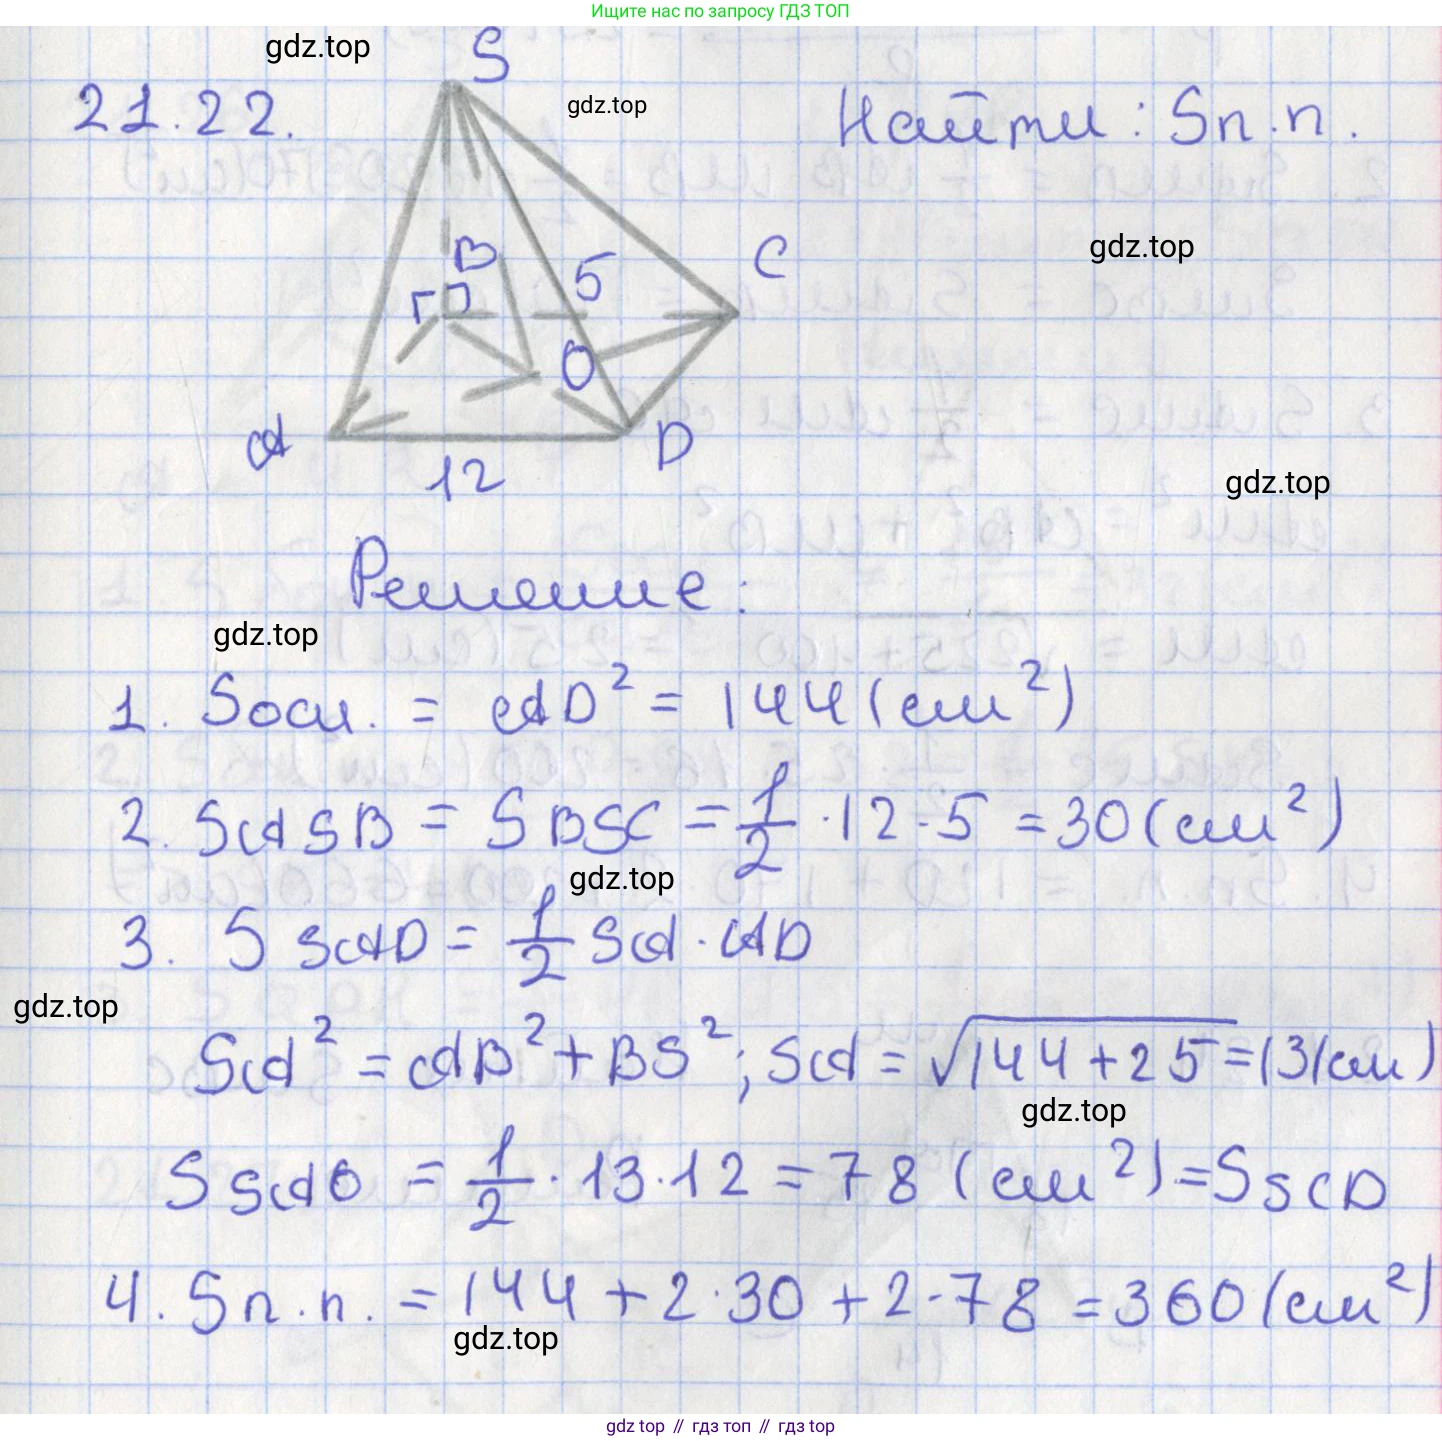 Ищите нас по запросу ГДЗ ТОП
gdz.top
S
21.22.
gdz.top
Найти: Sп.п.
gdz.top
B
5
C
O
A
D
12
gdz.top
Решение:
gdz.top
1. Sосн. = AD² = 144 (см²)
2. SASB = SBSC = 1/2 · 12 · 5 = 30 (см²)
gdz.top
3. SSAD = 1/2 SA · AD
gdz.top
SA² = AB² + BS²; SA = √144 + 25 = 13(см)
gdz.top
SSAD = 1/2 · 13 · 12 = 78 (см²) = SSCD
4. Sп.п. = 144 + 2·30 + 2·78 = 360 (см²)
gdz.top
gdz top // гдз топ // гдз top